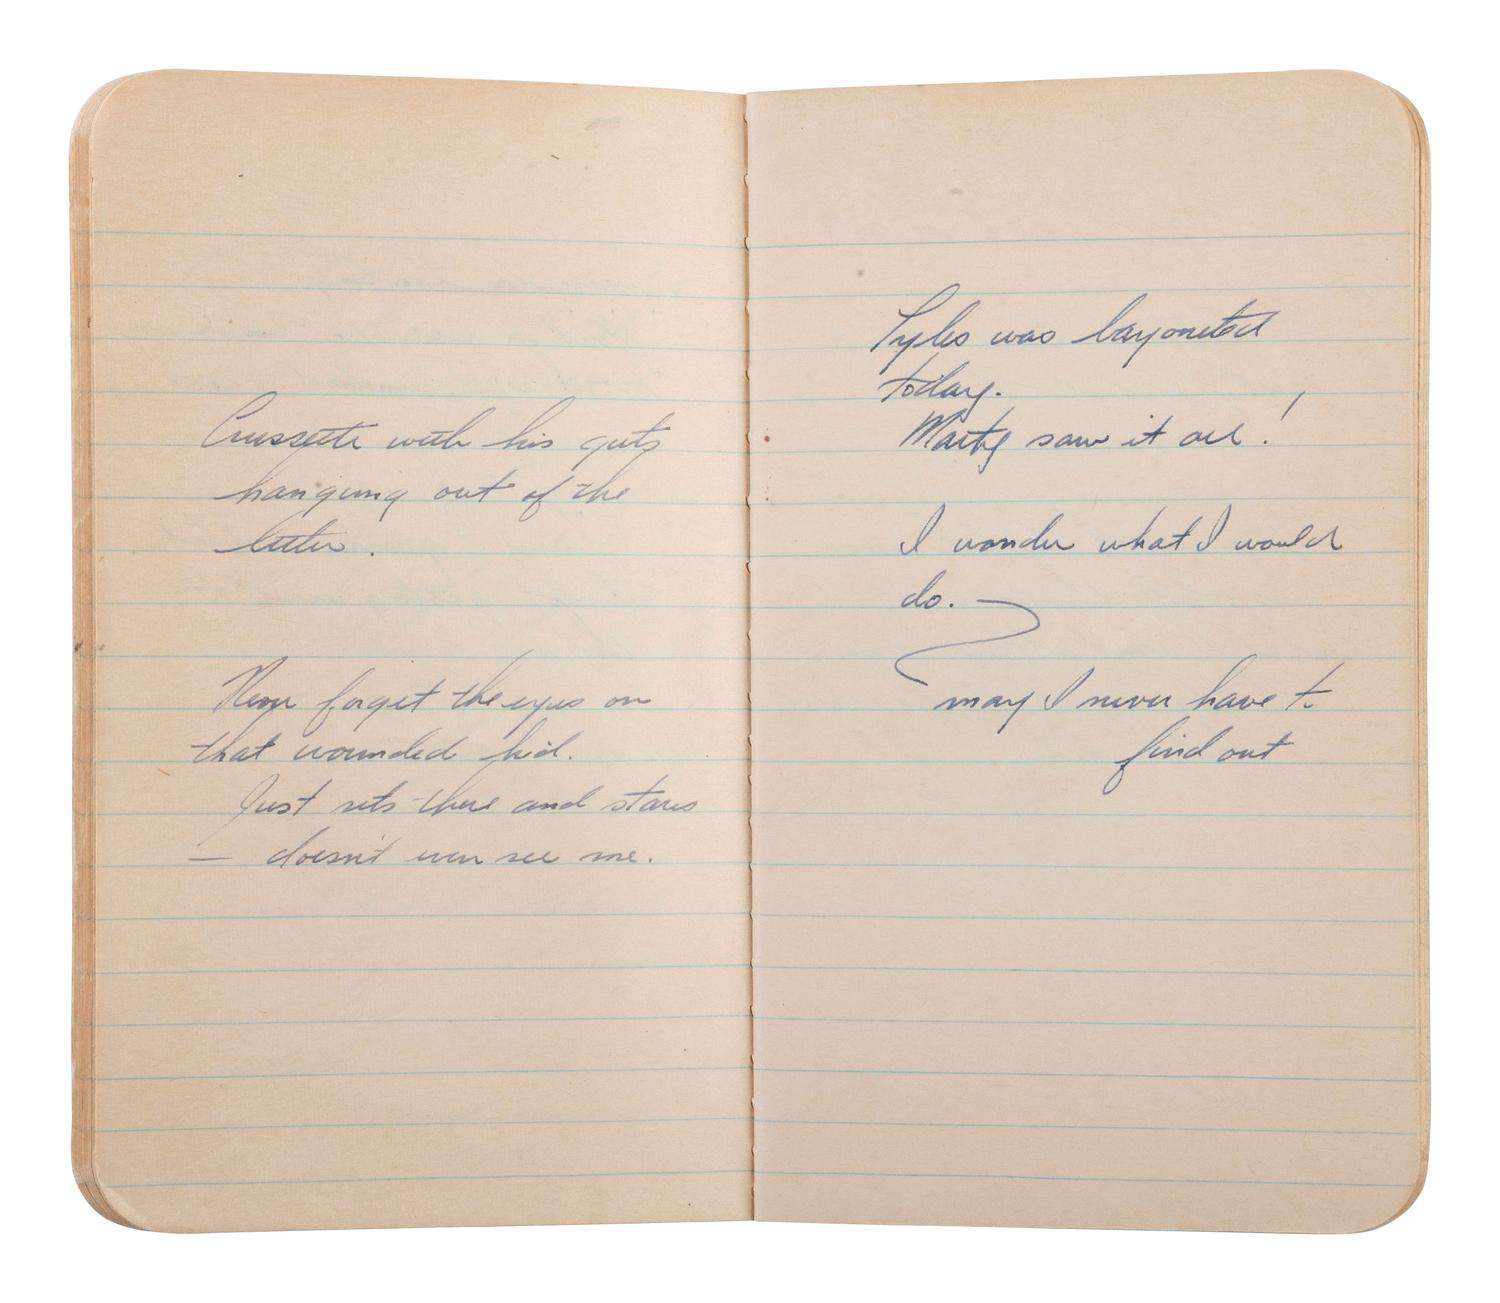 with his guts
hanging out of the
litter.
Never forget the eyes on
that wounded kid.
Just sits there and stares
— doesn't even see me.
Lyles was bayoneted
today.
Marty saw it all!
I wonder what I would
do.
may I never have to
find out